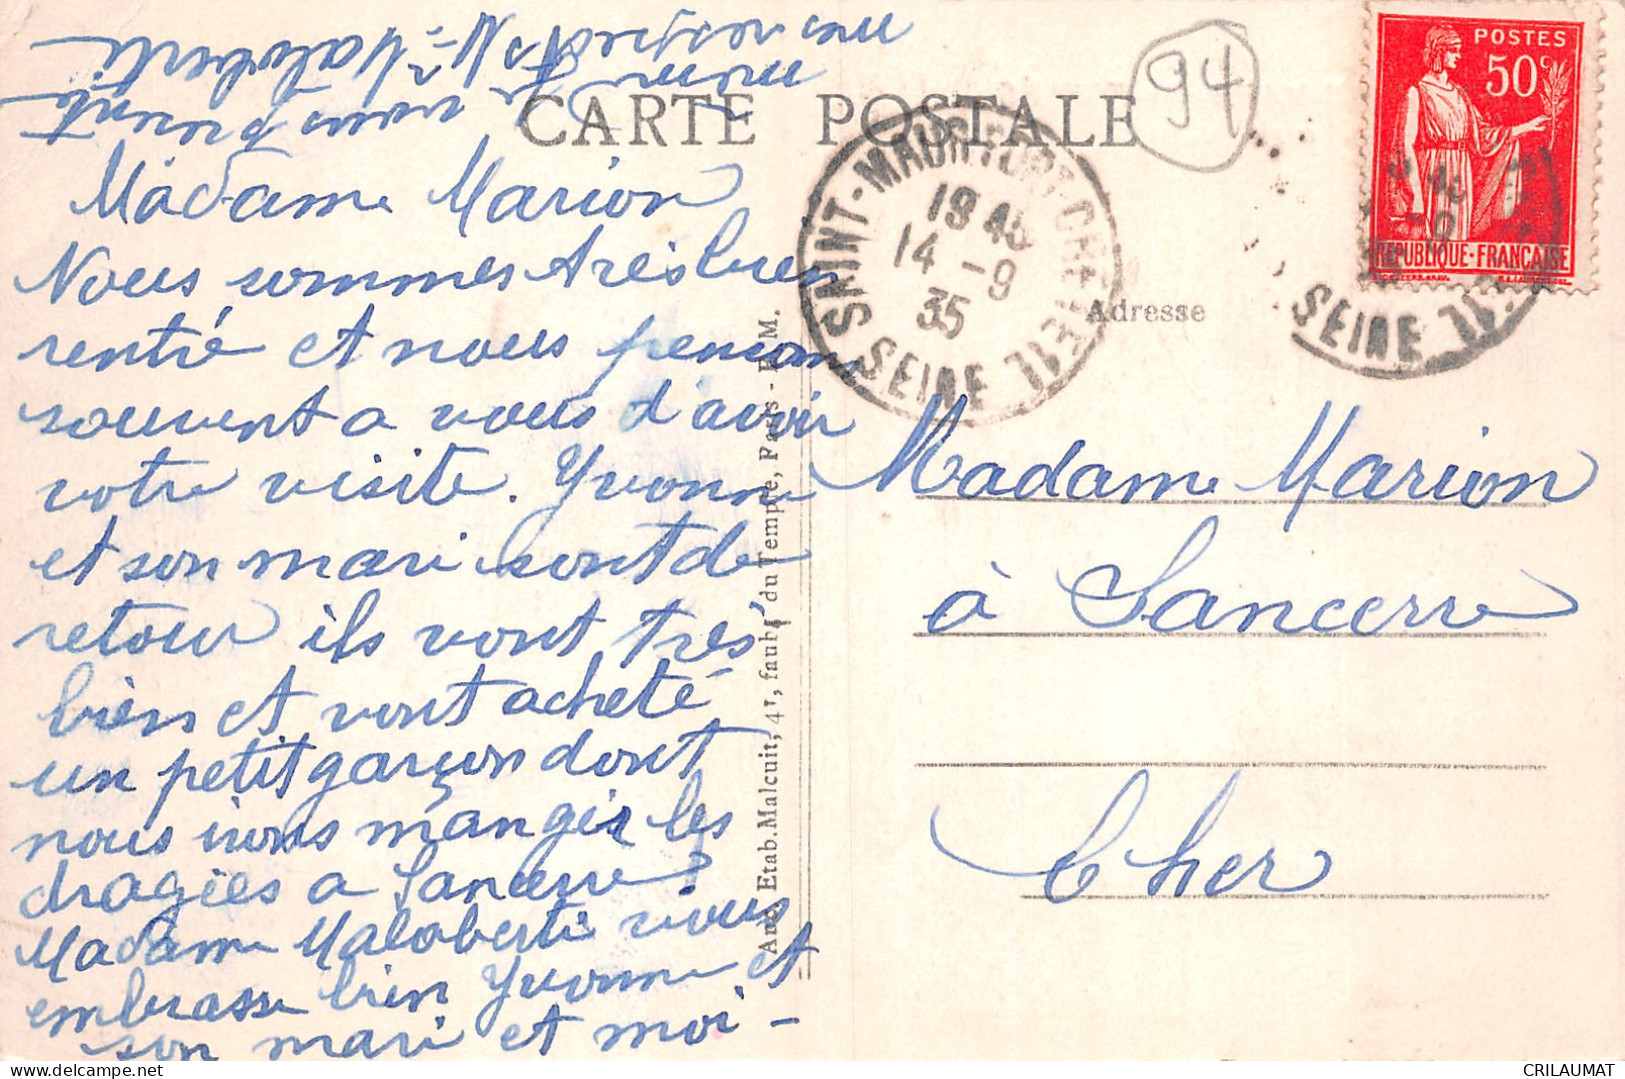 CARTE POSTALE
94
POSTES
50c
REPUBLIQUE-FRANÇAISE
SAINT-MAUR-FORT-CRETEIL
1945
14-9
35
SEINE
CRETEIL
SEINE
Adresse
Madame Marion
Nous sommes très bien
rentré et nous pensons
souvent a vous d'avoir
votre visite. Yvonne
et son mari sont de
retour ils vont très
bien et vont acheté
un petit garçon dont
nous irons manger les
dragées a Sancerre?
Madame Maloberti vous
embrasse bien Yvonne et
son mari et moi -
Maloberti
Madame Marion
à Sancerre
Cher
Anc. Etab. Malcuit, 41, faubg du Temple, Paris - F. M.
CRILAUMAT